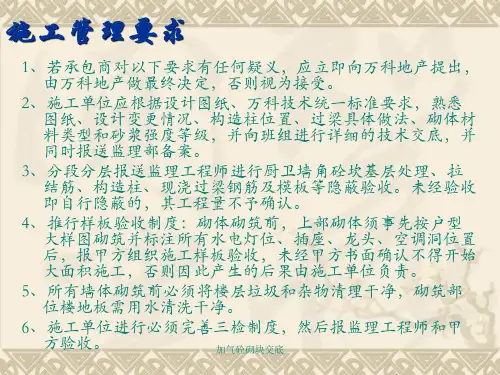 施工管理要求
1、若承包商对以下要求有任何疑义，应立即向万科地产提出，
由万科地产做最终决定，否则视为接受。
2、施工单位应根据设计图纸、万科技术统一标准要求，熟悉
图纸、设计变更情况、构造柱位置、过梁具体做法、砌体材
料类型和砂浆强度等级，并向班组进行详细的技术交底，并
同时报送监理部备案。
3、分段分层报送监理工程师进行厨卫墙角砼坎基层处理、拉
结筋、构造柱、现浇过梁钢筋及模板等隐蔽验收。未经验收
即自行隐蔽的，其工程量不予确认。
4、推行样板验收制度：砌体砌筑前，上部砌体须事先按户型
大样图砌筑并标注所有水电灯位、插座、龙头、空调洞位置
后，报甲方组织施工样板验收，未经甲方书面确认不得开始
大面积施工，否则因此产生的后果由施工单位负责。
5、所有墙体砌筑前必须将楼层垃圾和杂物清理干净，砌筑部
位楼地板需用水清洗干净。
6、施工单位进行必须完善三检制度，然后报监理工程师和甲
方验收。
加气砼砌块交底